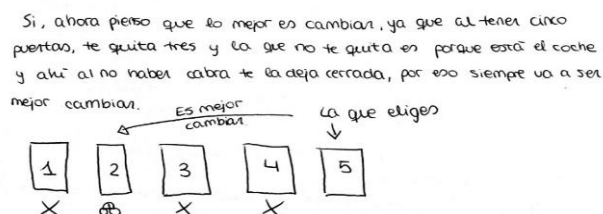 Si, ahora pienso que lo mejor es cambiar, ya que al tener cinco
puertas, te quita tres y la que no te quita es porque está el coche
y ahí al no haber cabra te la deja cerrada, por eso siempre va a ser
mejor cambiar.
Es mejor
cambiar
La que eliges
1 2 3 4 5
X X X